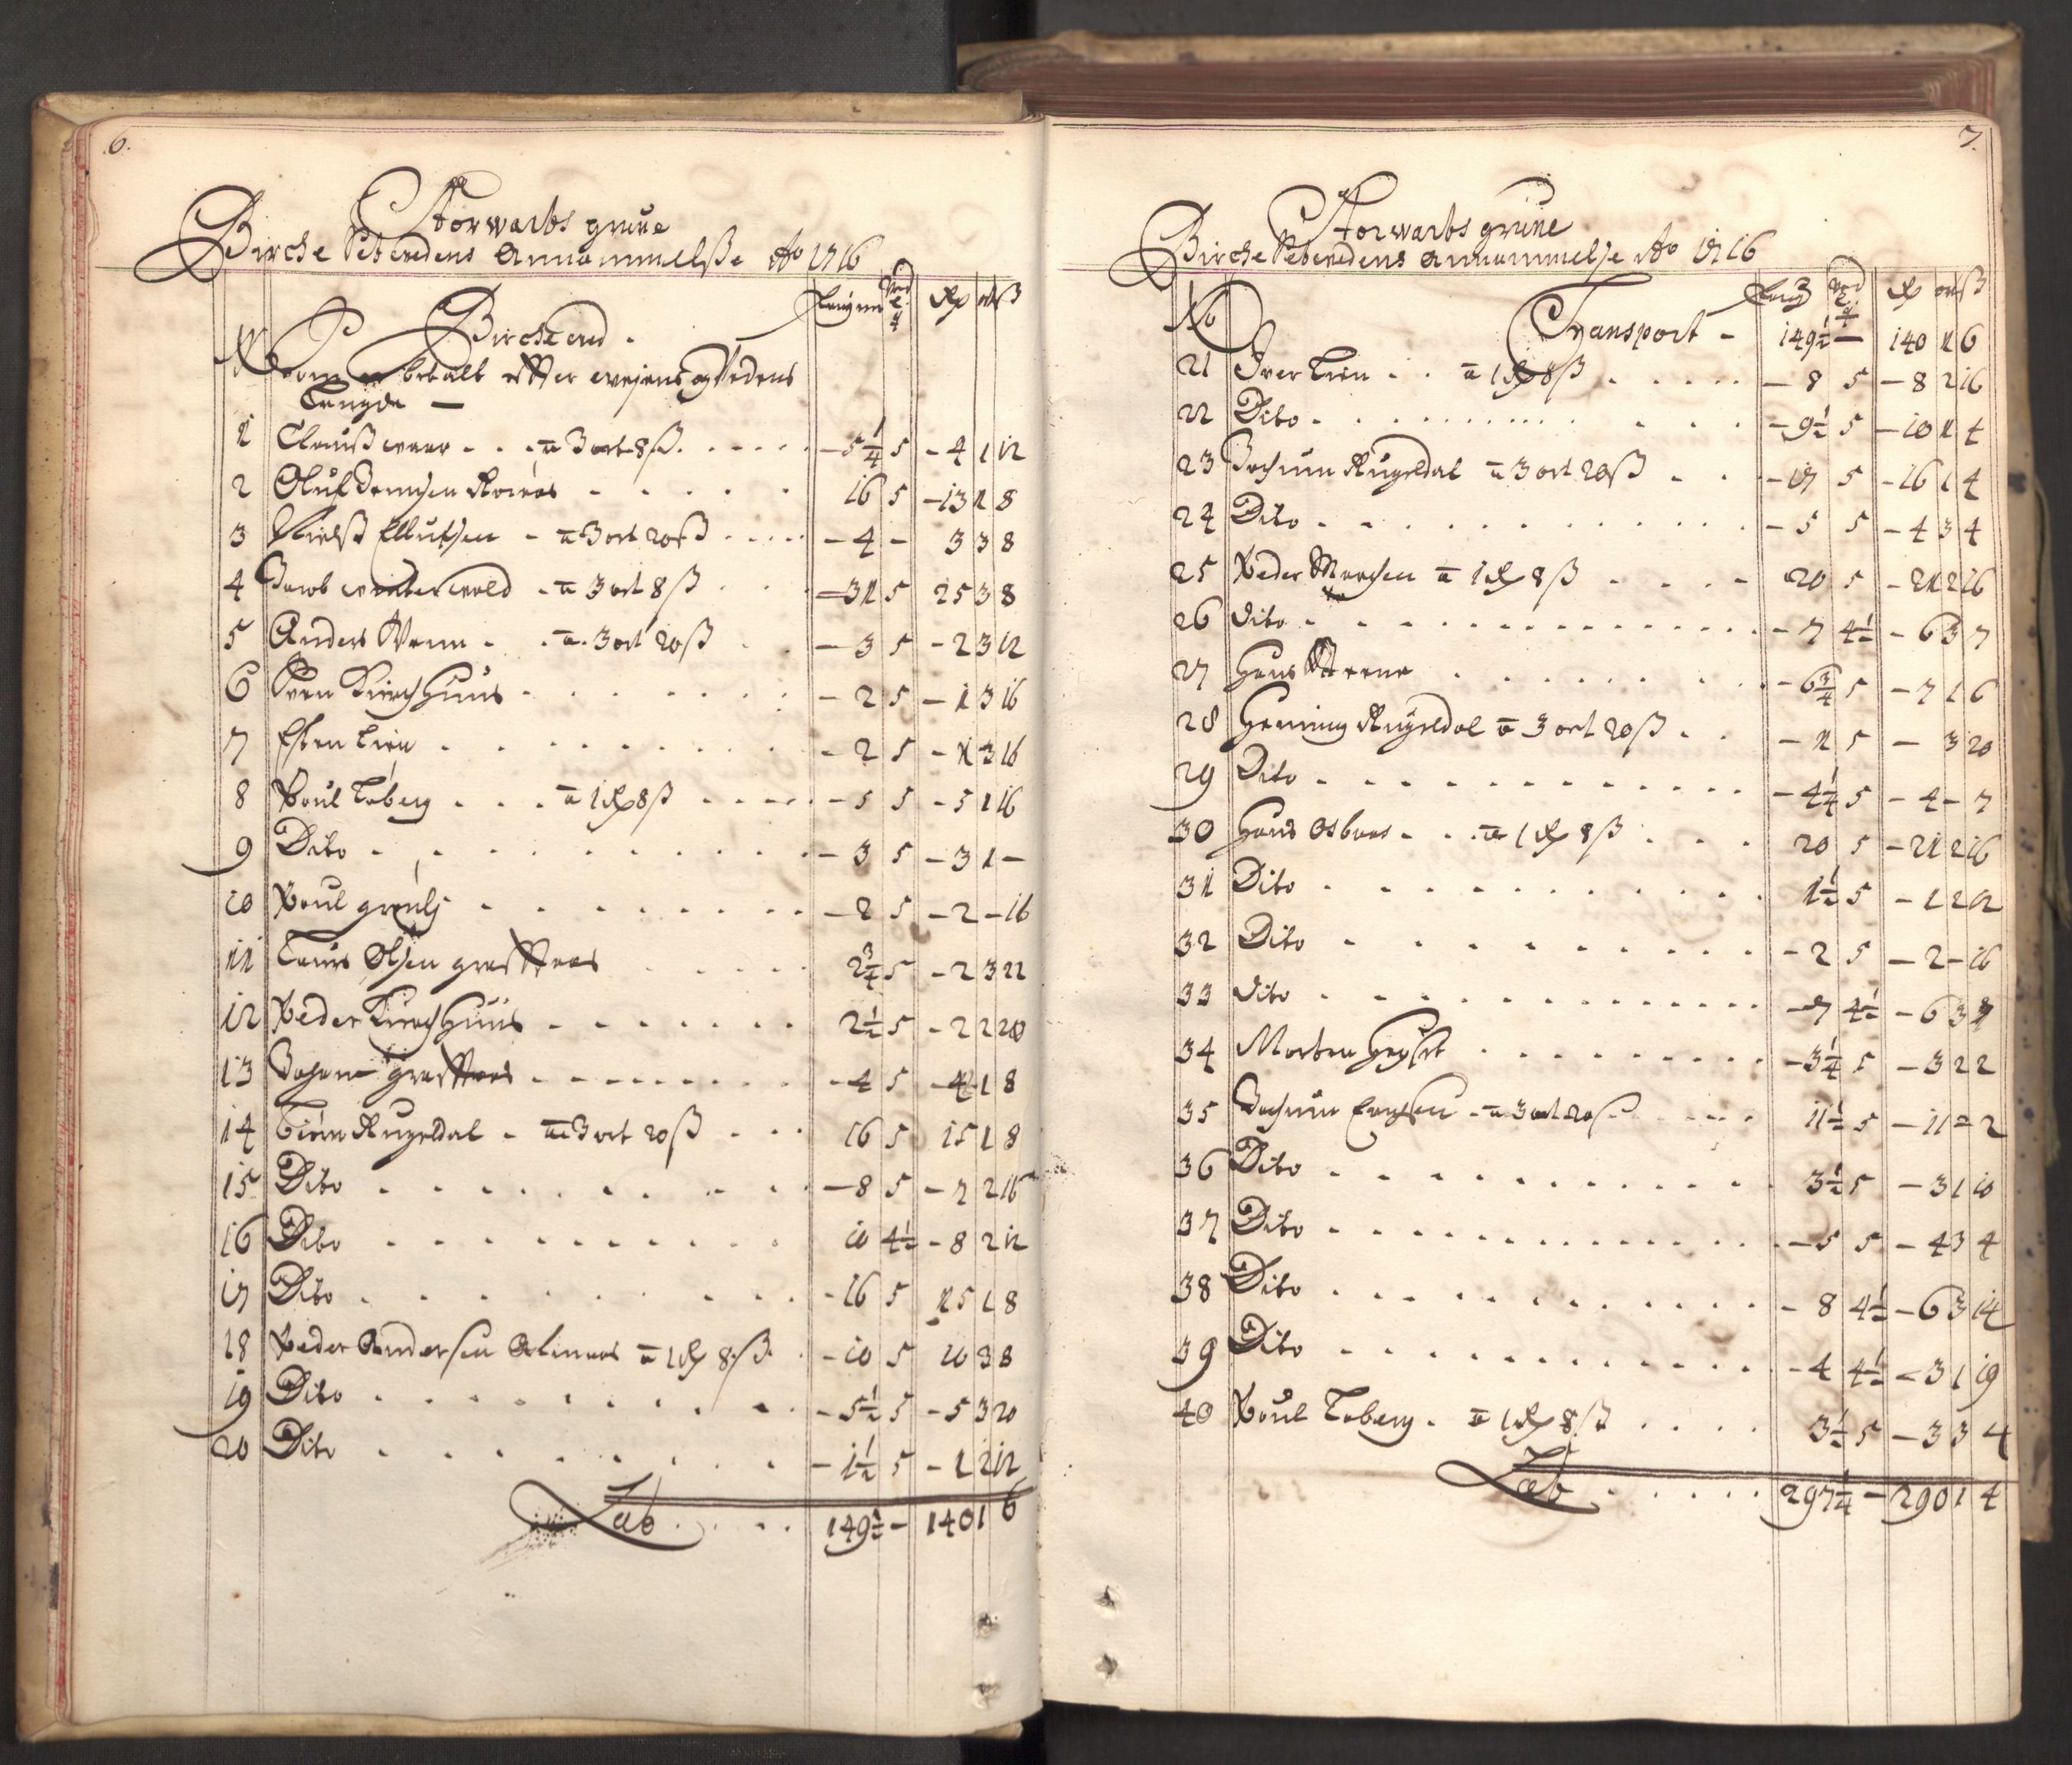 6.
Storwarts gruue
Birche Setvedens Annammelße Ao 1716
Birche ved
No Som er betalt efter vejens og Vedens Lengde Rd ort ß
1 Clauß waar - - - a 3 ort 8 ß - 5 1/4 5 - 4 1 12
2 Oluf Jemsen Roraas 16 5 - 13 1 8
3 Nielß Ellufsen - a 3 ort 20 ß - 4 - 3 3 8
4 Jacob winterwold - a 3 ort 8 ß - 31 5 25 3 8
5 Anders Wenn - a 3 ort 20 ß - 3 5 - 2 3 12
6 Sven Kirchhuus - 2 5 - 1 3 16
7 Esten Lien - 2 5 - 1 3 16
8 Poul Toberg - - - a 1 Rd 8 ß - 5 5 - 5 1 16
9 Dito - 3 5 - 3 1 -
10 Poul - 2 5 - 2 - 16
11 Laurs Olsen 2 3/4 5 - 2 3 22
12 Peder Kirchhuus 2 1/2 5 - 2 2 20
13 - 4 5 - 4 1 8
14 Rugeldal - a 3 ort 20 ß 16 5 15 1 8
15 Dito - 8 5 - 7 2 16
16 Dito 10 4 1/2 - 8 2 12
17 Dito - 16 5 15 1 8
18 Peder Andersen Aalmaas a 1 Rd 8 ß - 10 5 10 3 8
19 Dito - 5 1/2 5 - 5 3 20
20 Dito - 1 1/2 5 - 1 2 12
Lat 149 1/2 - 140 1 6
7.
Storwarts gruue
Birche Setvedens Annammelse Ao 1716
No Rd ort ß
Transport - 149 1/2 - 140 1 6
21 Iver Lien - - a 1 Rd 8 ß - 8 5 - 8 2 16
22 Dito - 9 1/2 5 - 10 1 4
23 Jochum Rugeldal a 3 ort 20 ß - 17 5 - 16 1 4
24 Dito - 5 5 - 4 3 4
25 Peder Morchen a 1 Rd 8 ß 20 5 - 21 2 16
26 Dito - 7 4 1/2 - 6 3 7
27 Hans Steene - 6 3/4 5 - 7 1 6
28 Henning Rugeldal a 3 ort 20 ß - 1 5 - 3 20
29 Dito - 4 1/4 5 - 4 - 7
30 Hans Aasbaas - - a 1 Rd 8 ß 20 5 - 21 2 16
31 Dito 1 1/2 5 - 1 2 12
32 Dito - 2 5 - 2 - 16
33 Dito - 7 4 1/2 - 6 3 7
34 Morten - 3 1/4 5 - 3 2 2
35 Jochum - a 3 ort 20 ß 11 1/2 5 - 11 - 2
36 Dito 3 1/2 5 - 3 1 10
37 Dito - 5 5 - 4 3 4
38 Dito - 8 4 1/2 - 6 3 14
39 Dito - 4 4 1/2 - 3 1 19
40 Poul Toberg - a 1 Rd 8 ß 3 1/2 5 - 3 3 4
Lat 297 1/4 - 290 1 4